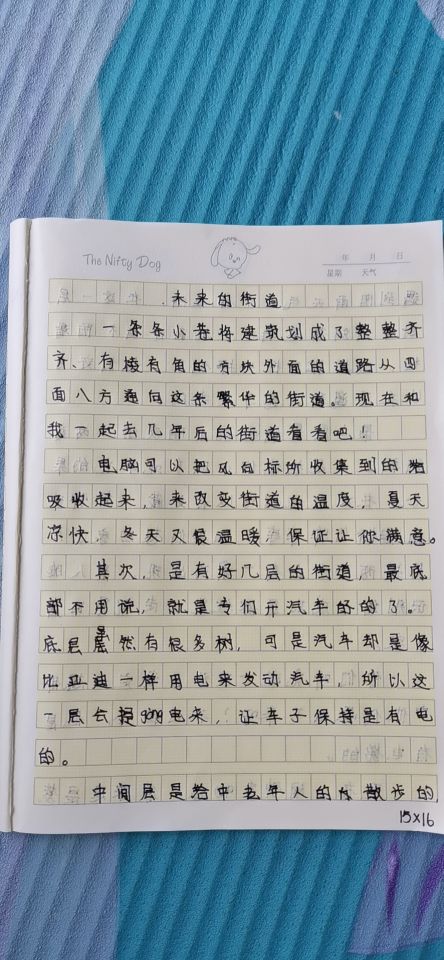 The Nifty Dog
年 月 日
星期 天气
未来的街道
一条条小巷将建筑划成了整整齐
齐、有棱有角的方块外面的道路从四
面八方通向这条繁华的街道。现在和
我一起去几年后的街道看看吧！
电脑可以把风向标所收集到的
吸收起来，来改变街道的温度，夏天
凉快，冬天又很温暖，保证让你满意。
其次，是有好几层的街道，最底
部不用说，就是专们开汽车的的了。
底层虽然有很多树，可是汽车却是像
比亚迪一样用电来发动汽车，所以这
一层会提gōng电来，让车子保持是有电
的。
中间层是给中老年人的散步的，
15×16